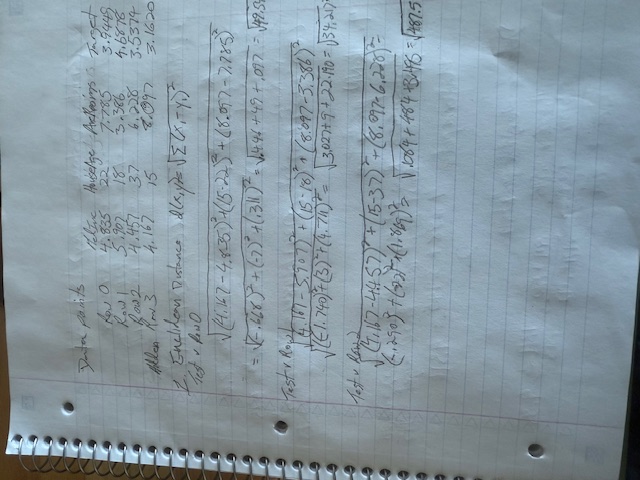 Data points
MedInc HouseAge AveRooms Target
Row 0 4.835 22 7.785 3.9445
Row 1 5.907 18 3.386 4.6878
Row 2 4.457 37 6.228 3.5374
Row 3 4.167 15 8.097 3.1620
1. Euclidean Distance d(x,y)=√Σ(x₁-y₁)²
Test v Row 0
√(4.167-4.835)²+(15-22)²+(8.097-7.785)²
=√(-.668)²+(-7)²+(.311)²=√.446+49+.097=√49.5
Test v Row 1
√(4.167-5.907)²+(15-18)²+(8.097-3.386)²
√(-1.740)²+(3)²+(4.711)²=√3.027+9+22.190=√34.217
Test v Row 2
√(4.167-4.457)²+(15-37)²+(8.097-6.228)²=
(-.290)²+(-22)²+(1.869)²=√.084+484+3.495=√487.5